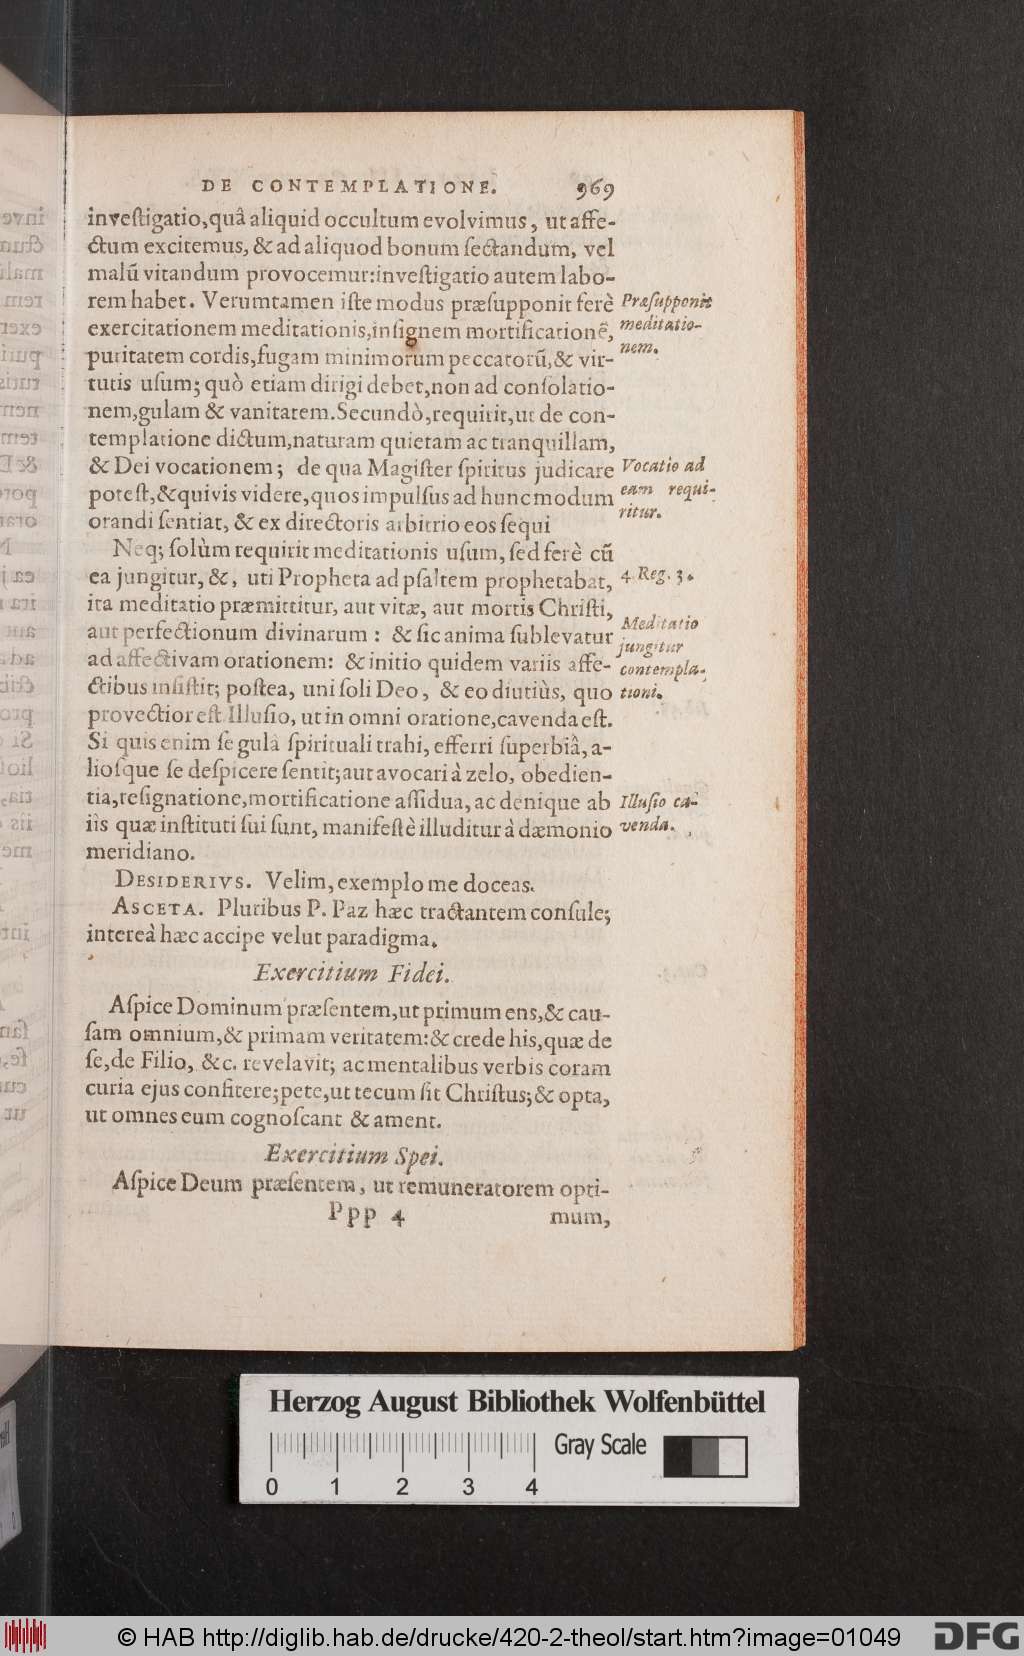 DE CONTEMPLATIONE. 969
investigatio,quâ aliquid occultum evolvimus, ut affe-
ctum excitemus, & ad aliquod bonum sectandum, vel
malũ vitandum provocemur:investigatio autem labo-
rem habet. Verumtamen iste modus præsupponit ferè
exercitationem meditationis,insignem mortificationẽ,
puritatem cordis,fugam minimorum peccatorũ,& vir-
tutis usum; quò etiam dirigi debet,non ad consolatio-
nem,gulam & vanitatem.Secundò,requirit,ut de con-
templatione dictum,naturam quietam ac tranquillam,
& Dei vocationem; de qua Magister spiritus judicare
potest,&quivis videre,quos impulsus ad hunc modum
orandi sentiat, & ex directoris arbitrio eos sequi
Neq; solùm requirit meditationis usum, sed ferè cũ
ea jungitur, &, uti Propheta ad psaltem prophetabat,
ita meditatio præmittitur, aut vitæ, aut mortis Christi,
aut perfectionum divinarum : & sic anima sublevatur
ad affectivam orationem: & initio quidem variis affe-
ctibus insistit; postea, uni soli Deo, & eo diutiùs, quo
provectior est Illusio, ut in omni oratione,cavenda est.
Si quis enim se gula spirituali trahi, efferri superbiâ, a-
liosque se despicere sentit;aut avocari à zelo, obedien-
tia,resignatione,mortificatione assidua, ac denique ab
iis quæ instituti sui sunt, manifestè illuditur à dæmonio
meridiano.
DESIDERIVS. Velim, exemplo me doceas.
ASCETA. Pluribus P. Paz hæc tractantem consule;
intereà hæc accipe velut paradigma.
Exercitium Fidei.
Aspice Dominum præsentem,ut primum ens,& cau-
sam omnium,& primam veritatem:& crede his,quæ de
se,de Filio, &c. revelavit; ac mentalibus verbis coram
curia ejus confitere;pete,ut tecum sit Christus;& opta,
ut omnes eum cognoscant & ament.
Exercitium Spei.
Aspice Deum præsentem, ut remuneratorem opti-
Ppp 4 mum,
Præsupponit
meditatio-
nem.
Vocatio ad
eam requi-
ritur.
4. Reg. 3.
Meditatio
jungitur
contempla-
tioni.
Illusio ca-
venda.
Herzog August Bibliothek Wolfenbüttel
Gray Scale
0 1 2 3 4
© HAB http://diglib.hab.de/drucke/420-2-theol/start.htm?image=01049
DFG